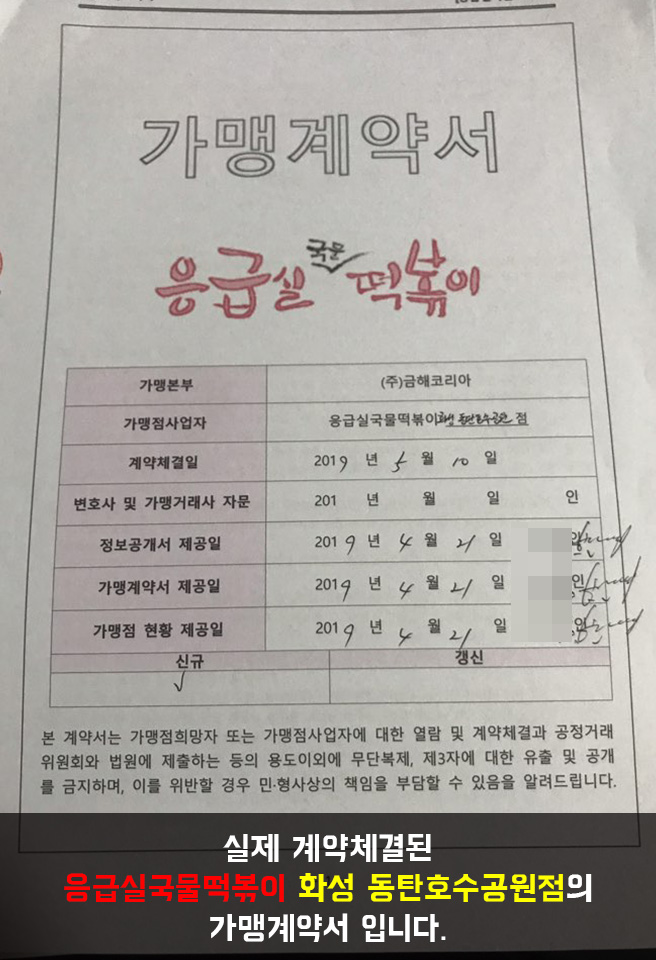 가맹계약서
응급실 국물 떡볶이
가맹본부 (주)금해코리아
가맹점사업자 응급실국물떡볶이화성 동탄호수공원 점
계약체결일 2019 년 5 월 10 일
변호사 및 가맹거래사 자문 201 년 월 일 인
정보공개서 제공일 2019 년 4 월 21 일
가맹계약서 제공일 2019 년 4 월 21 일 인
가맹점 현황 제공일 2019 년 4 월 21 일
신규 갱신
본 계약서는 가맹점희망자 또는 가맹점사업자에 대한 열람 및 계약체결과 공정거래
위원회와 법원에 제출하는 등의 용도이외에 무단복제, 제3자에 대한 유출 및 공개
를 금지하며, 이를 위반할 경우 민·형사상의 책임을 부담할 수 있음을 알려드립니다.
실제 계약체결된
응급실국물떡볶이 화성 동탄호수공원점의
가맹계약서 입니다.